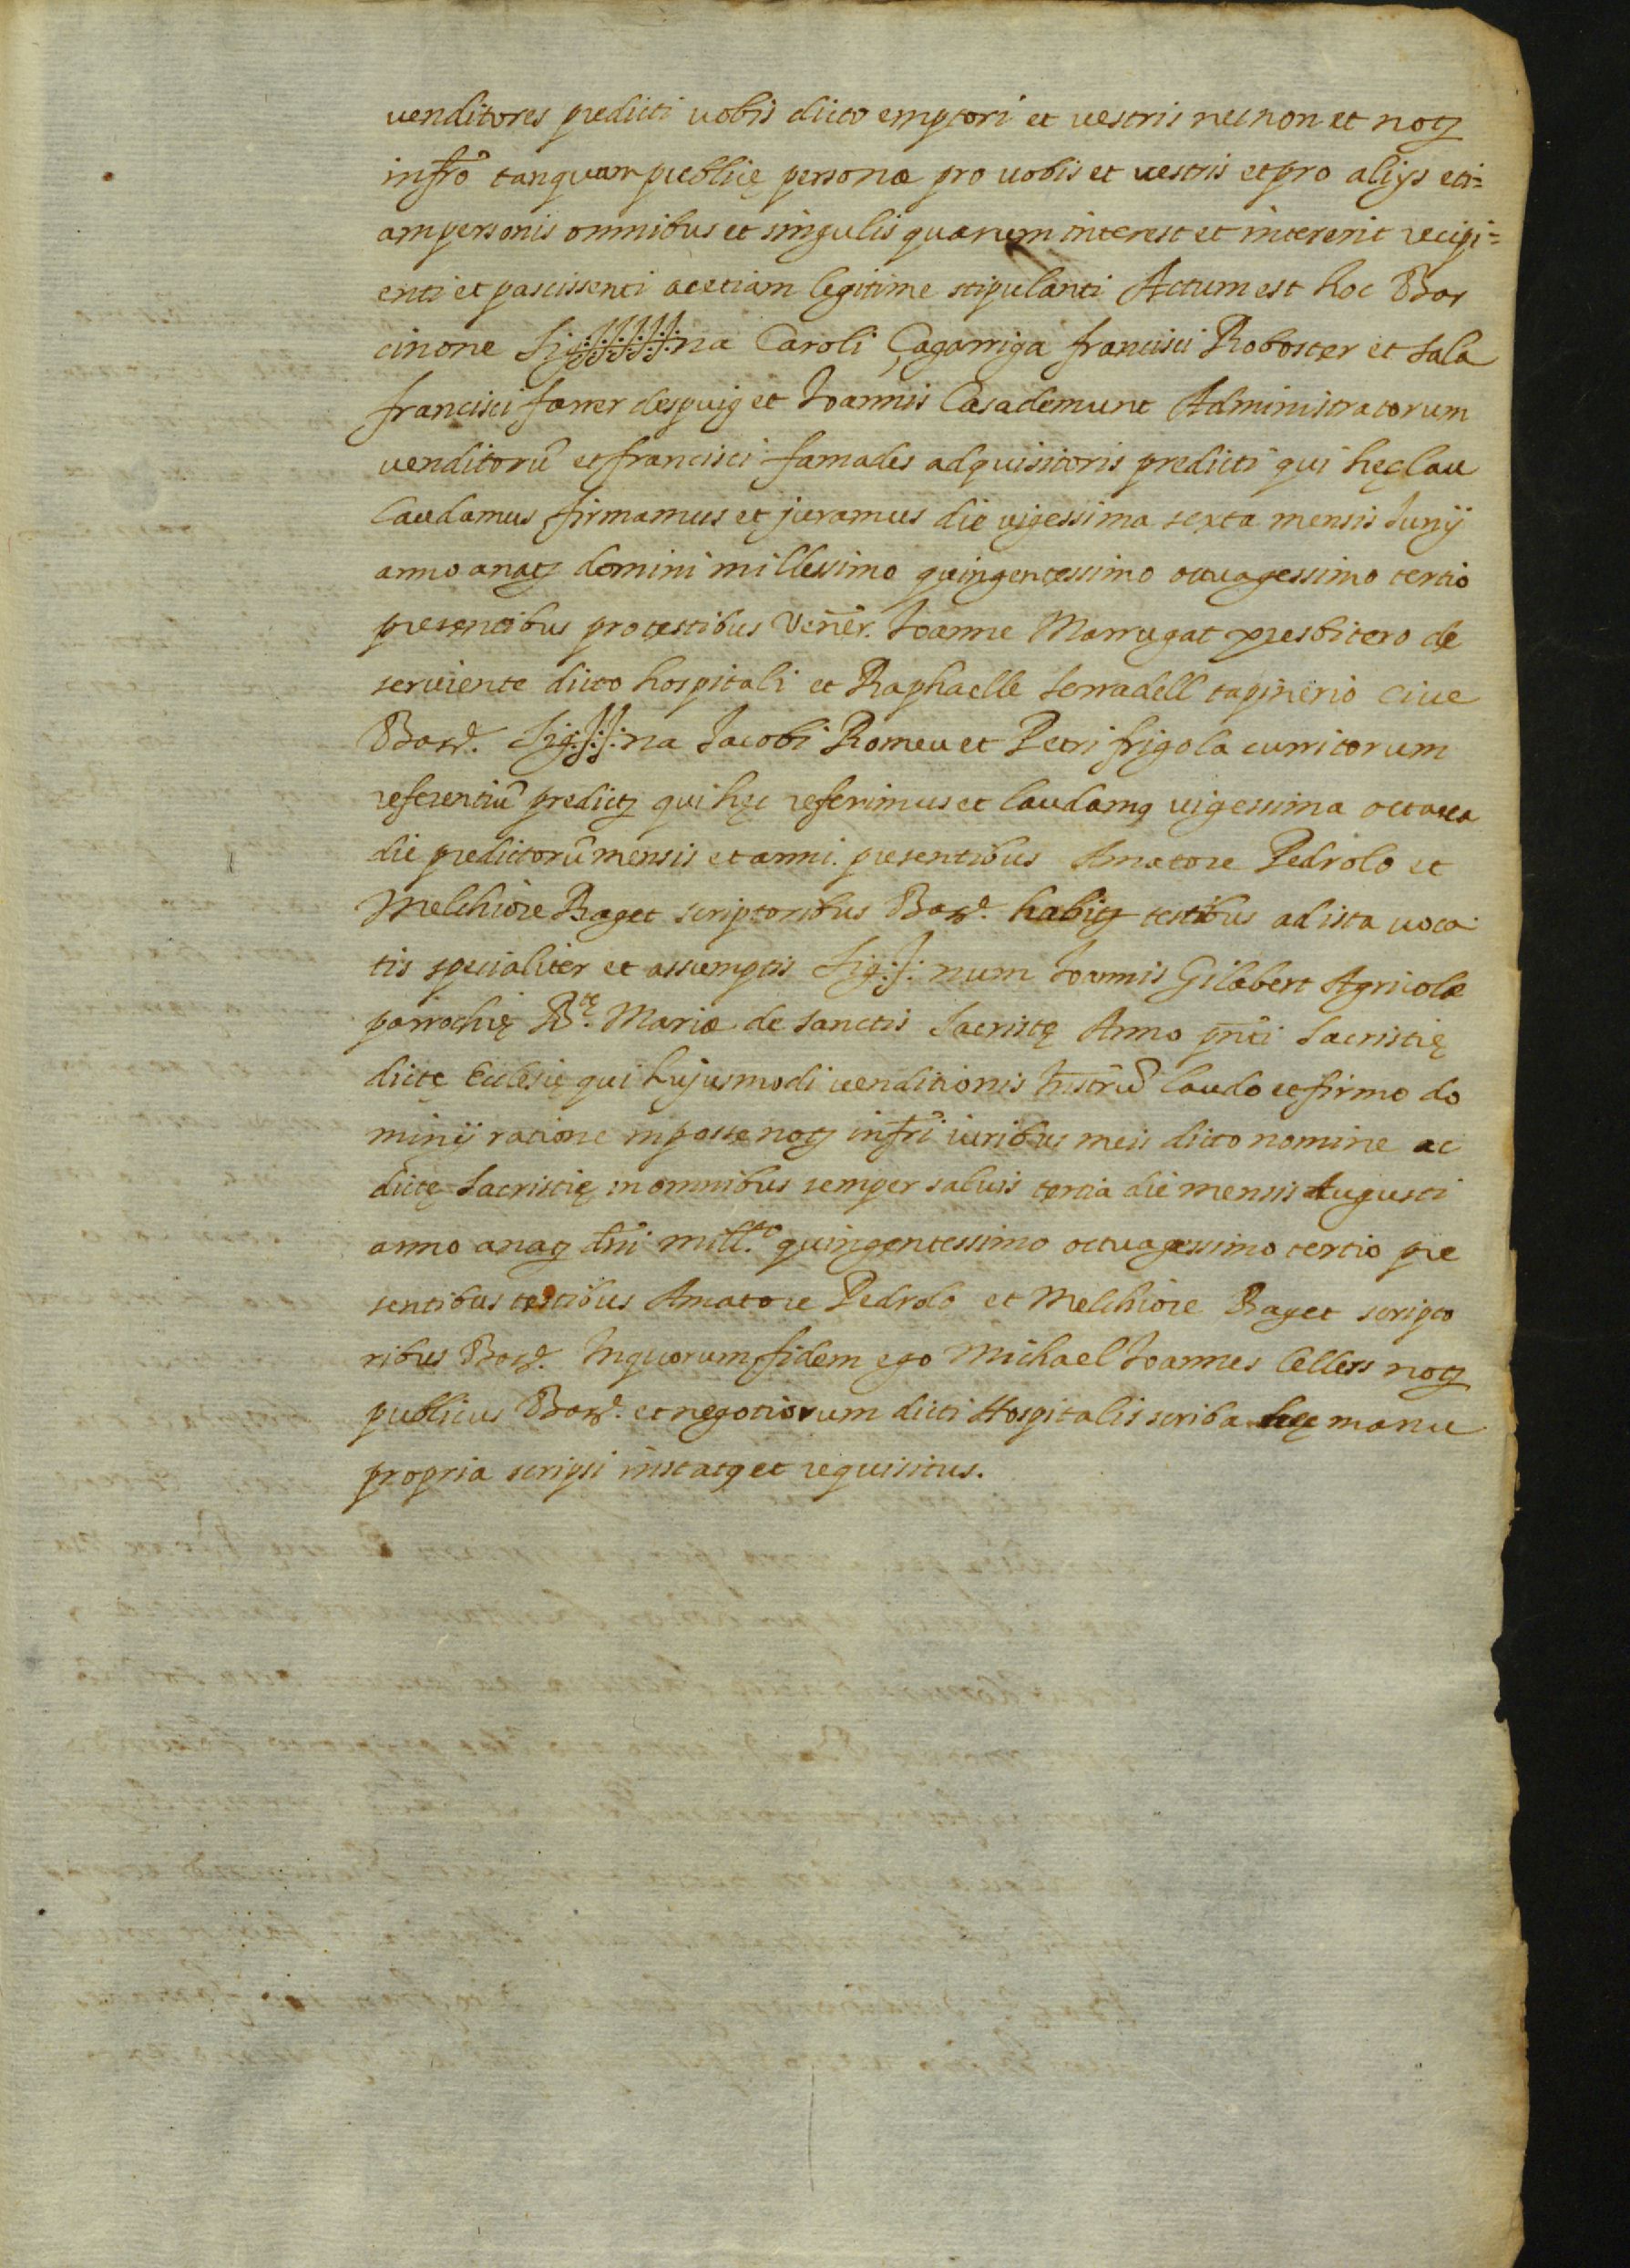 venditores predicti vobis dicto emptori et vestris necnon et notʒ
infrõ tanquam publicę personæ pro vobis et vestris et pro aliys eti=
am personis omnibus et singulis quarum interest et intererit recipi=
enti et pascissenti ac etiam legitime stipulanti Actum est hoc Bar
cinone Sig:/:/:/:/:/:na Caroli Çagarriga francisci Roboster et Sala
francisci farrer despuig et Joannis Casademunt Administratorum
venditorũ et francisci famades adquisitoris predicti qui hęc lau
laudamus firmamus et juramus die vigessima sexta mensis Junÿ
anno anatʒ domini millessimo quingentessimo octuagessimo tertio
presentibus pro testibus Venẽr. Joanne Marrugat presbitero de
serviente dicto hospitali et Raphaelle Serradell tapinerio cive
Barᵉ. Sig:/:/:na Jacobi Romeu et Petri frigola curritorum
referentiũ predictʒ qui hęc referimus et laudamꝰ vigessima octava
die predictorũ mensis et anni. presentibus Amatore Pedrolo et
Melchiore Raget scriptoribus Barᵉ. habitʒ testibus ad ista voca
tis specialiter et assumptis Sig:/: num Joannis Gilabert Agricolæ
parrochię Bᵗᵉ. Mariæ de Sanctis Sacristę Anno pñti Sacristię
dictę Ecclesię qui hujusmodi venditionis Instrũ laudo et firmo do
minÿ ratione in posse notʒ infrĩ iuribus meis dicto nomine ac
dictę Sacristię in omnibus semper salvis tertia die mensis Augusti
anno anatʒ dñi mill.ᵐᵒ quingentessimo octuagessimo tertio pre
sentibus testibus Amatore Pedrolo et Melchiore Raget scripto
ribus Barᵉ. In quorum fidem ego Michael Joannes Cellers notʒ
publicus Barᵉ. et negotiorum dicti Hospitalis scriba hęc manu
propria scripsi instatʒ et requisitus.